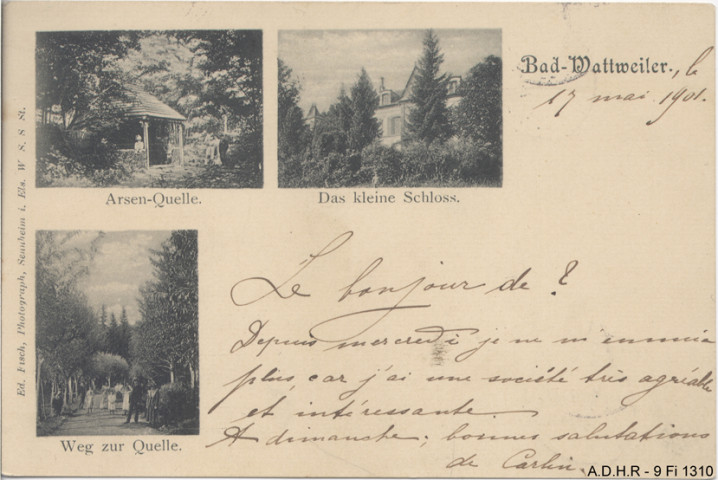 Bad-Wattweiler., le
17 mai 1901.
Arsen-Quelle.
Das kleine Schloss.
Ed. Fisch, Photograph, Sennheim i. Els. W S. S St.
Weg zur Quelle.
Le bonjour de ?
Depuis mercredi je ne m'ennuie
plus, car j'ai une société très agréable
et intéressante.
A dimanche; bonnes salutations
de Carlin.
A.D.H.R - 9 Fi 1310